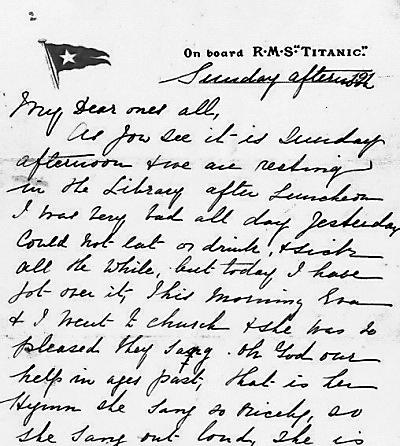 On board R·M·S. "TITANIC."
Sunday afternoon
My Dear ones all,
As you see it is Sunday
afternoon & we are resting
in the Library after Luncheon
I was very bad all day Yesterday
Could not eat or drink, & sick
all the while, but today I have
got over it, This Morning Eva
& I went to church & she was so
pleased they sang Oh God our
help in ages past, that is her
Hymn she sang so nicely, so
she sang out loud, She is